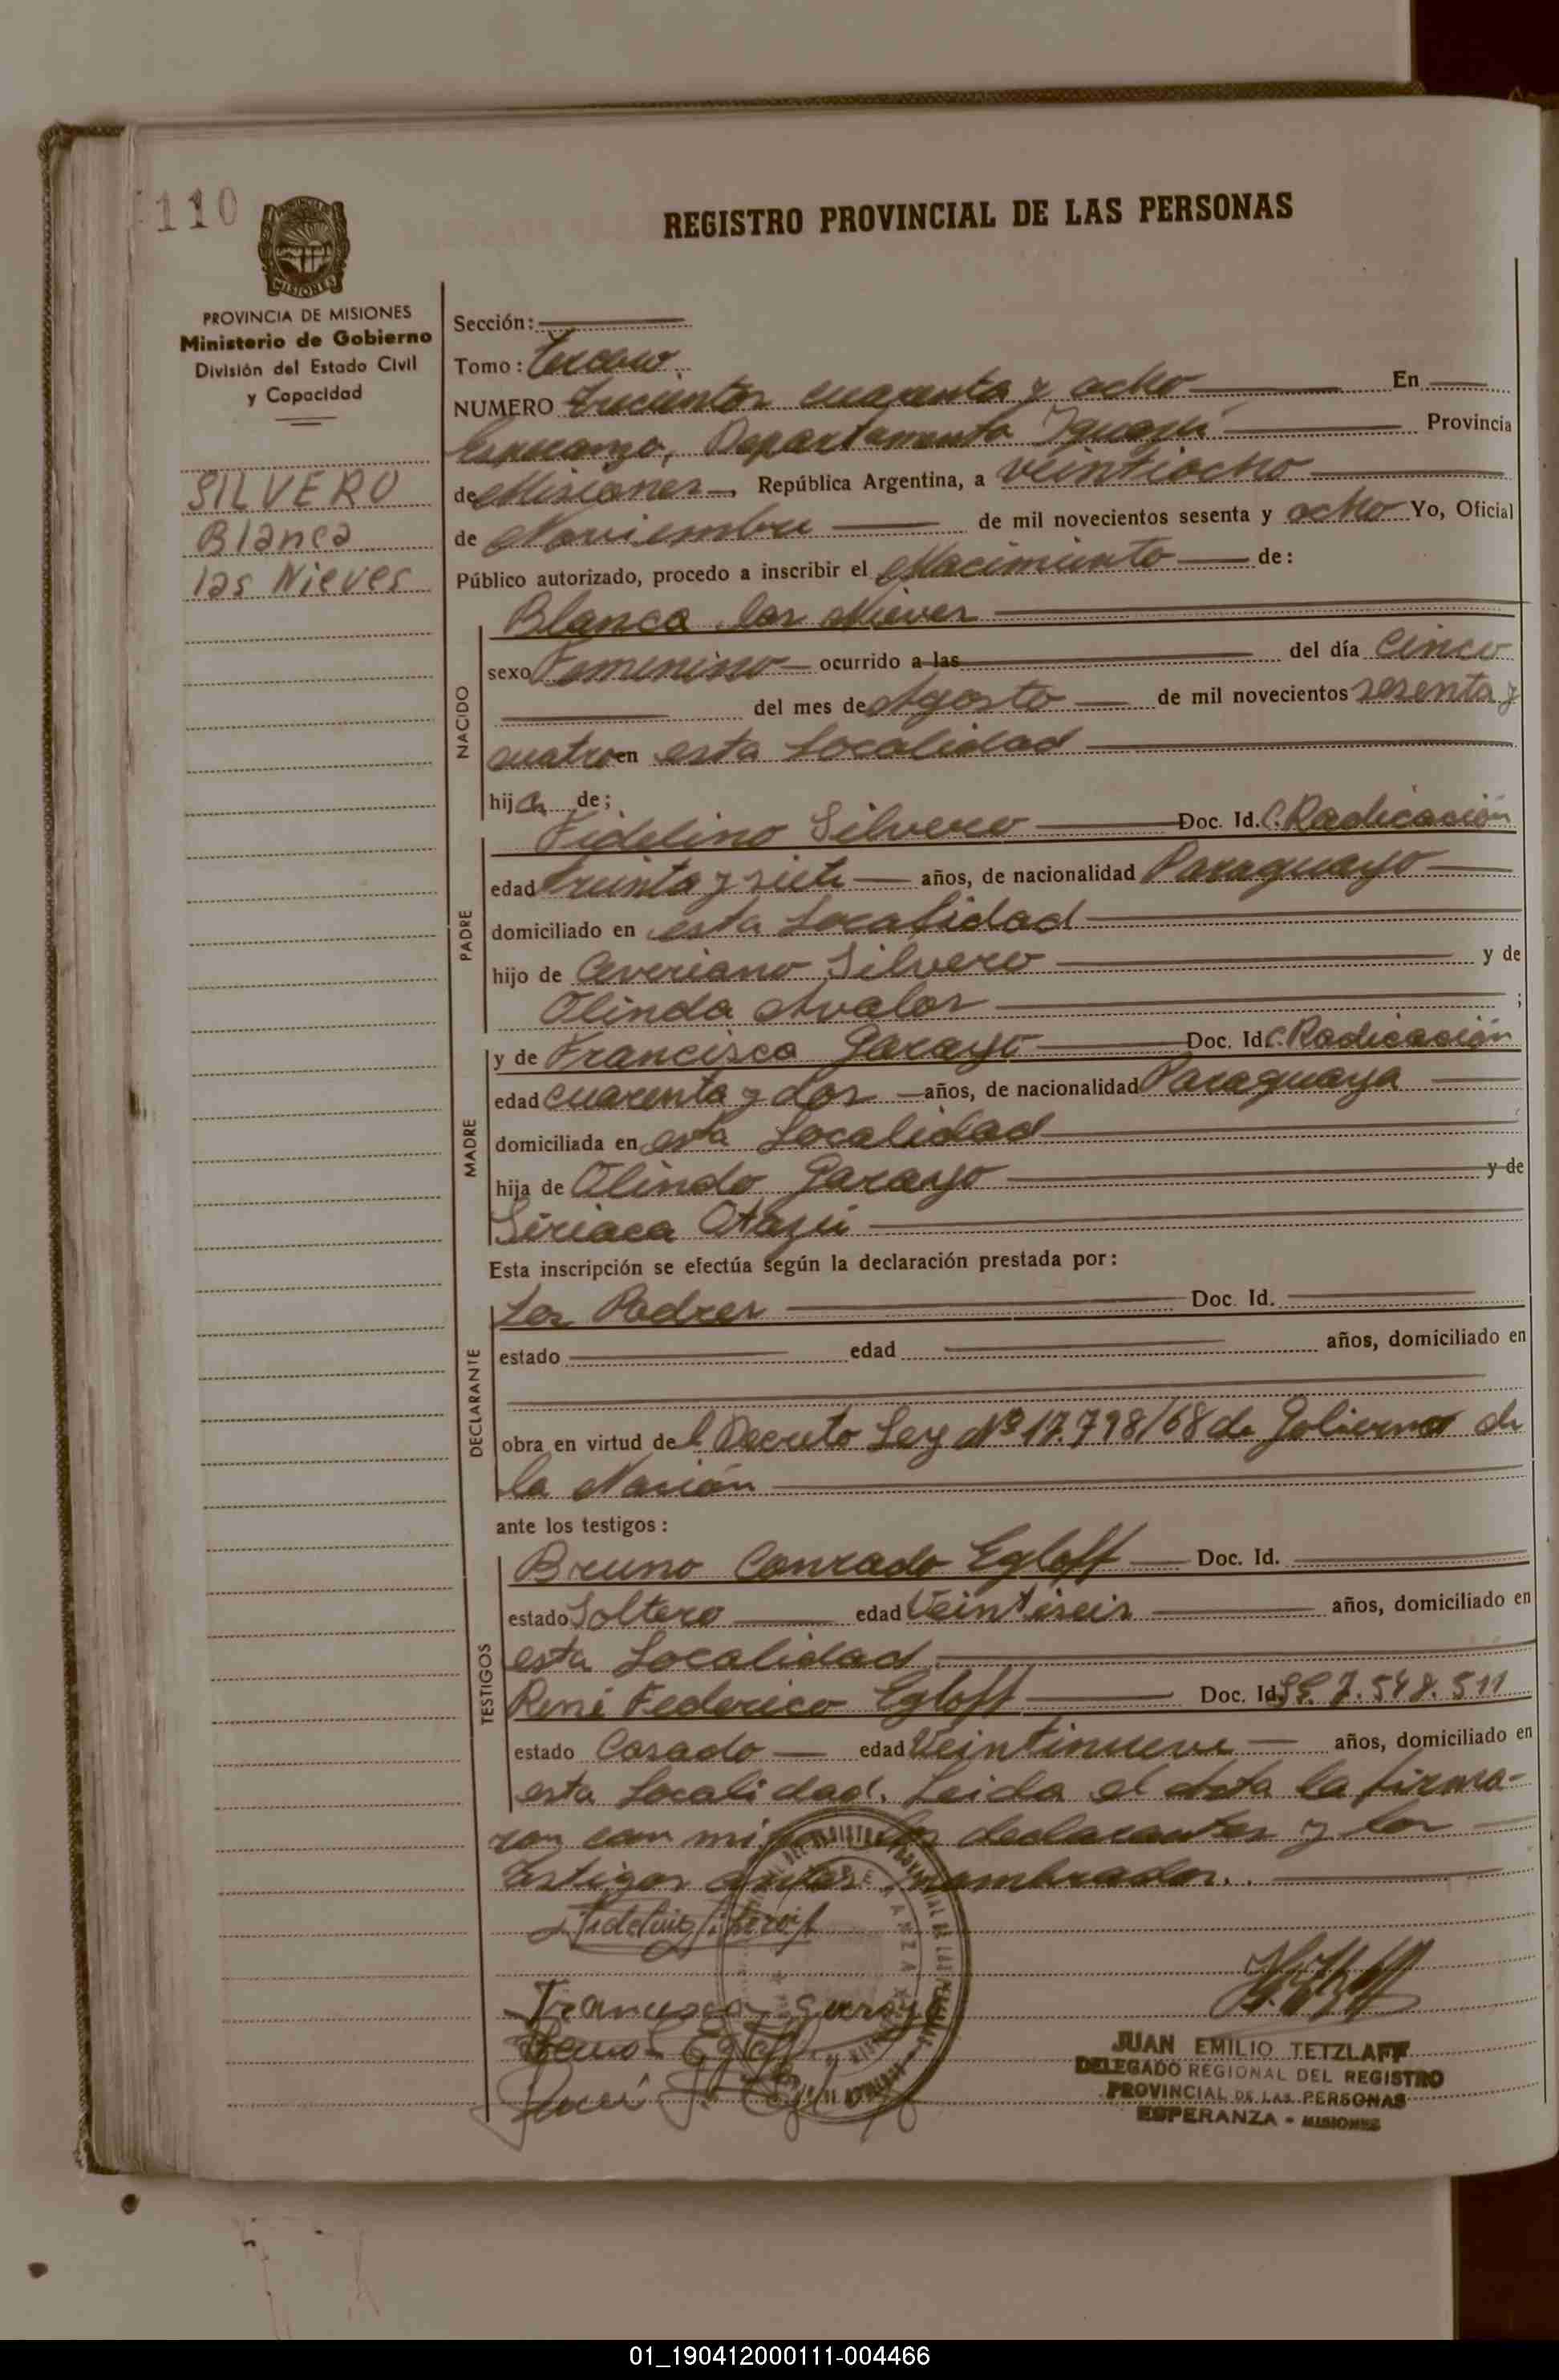 110
REGISTRO PROVINCIAL DE LAS PERSONAS
MISIONES
PROVINCIA DE MISIONES
Ministerio de Gobierno
División del Estado Civil
y Capacidad
SILVERO
Blanca
las Nieves
Sección:
Tomo: Tercero
NUMERO Trescientos cuarenta y ocho En
Esperanza, Departamento Iguazú Provincia
de Misiones, República Argentina, a veintiocho
de Noviembre de mil novecientos sesenta y ocho Yo, Oficial
Público autorizado, procedo a inscribir el Nacimiento de:
NACIDO
Blanca las Nieves
sexo Femenino ocurrido a las del día Cinco
del mes de Agosto de mil novecientos sesenta y
cuatro en esta Localidad
hija de;
PADRE
Fidelino Silvero Doc. Id. C. Radicación
edad treinta y siete años, de nacionalidad Paraguayo
domiciliado en esta Localidad
hijo de Ceveriano Silvero y de
Olinda Avalos ;
MADRE
y de Francisca Garayo Doc. Id. C. Radicación
edad cuarenta y dos años, de nacionalidad Paraguaya
domiciliada en esta Localidad
hija de Olindo Garayo y de
Siriaca Otazú
Esta inscripción se efectúa según la declaración prestada por:
DECLARANTE
Los Padres Doc. Id.
estado edad años, domiciliado en
obra en virtud del Decreto Ley Nº 17.798/68 de Gobierno de
la Nación
ante los testigos:
TESTIGOS
Bruno Conrado Egloff Doc. Id.
estado Soltero edad Veintiseis años, domiciliado en
esta Localidad.
René Federico Egloff Doc. Id. 7.548.511
estado Casado edad Veintinueve años, domiciliado en
esta Localidad. Leida el Acta la firma-
ron con migo los declarantes y los
testigos antes nombrados.
Francisca Garayo
Bruno Egloff
René F. Egloff
JUAN EMILIO TETZLAFF
DELEGADO REGIONAL DEL REGISTRO
PROVINCIAL DE LAS PERSONAS
ESPERANZA - MISIONES
01_190412000111-004466